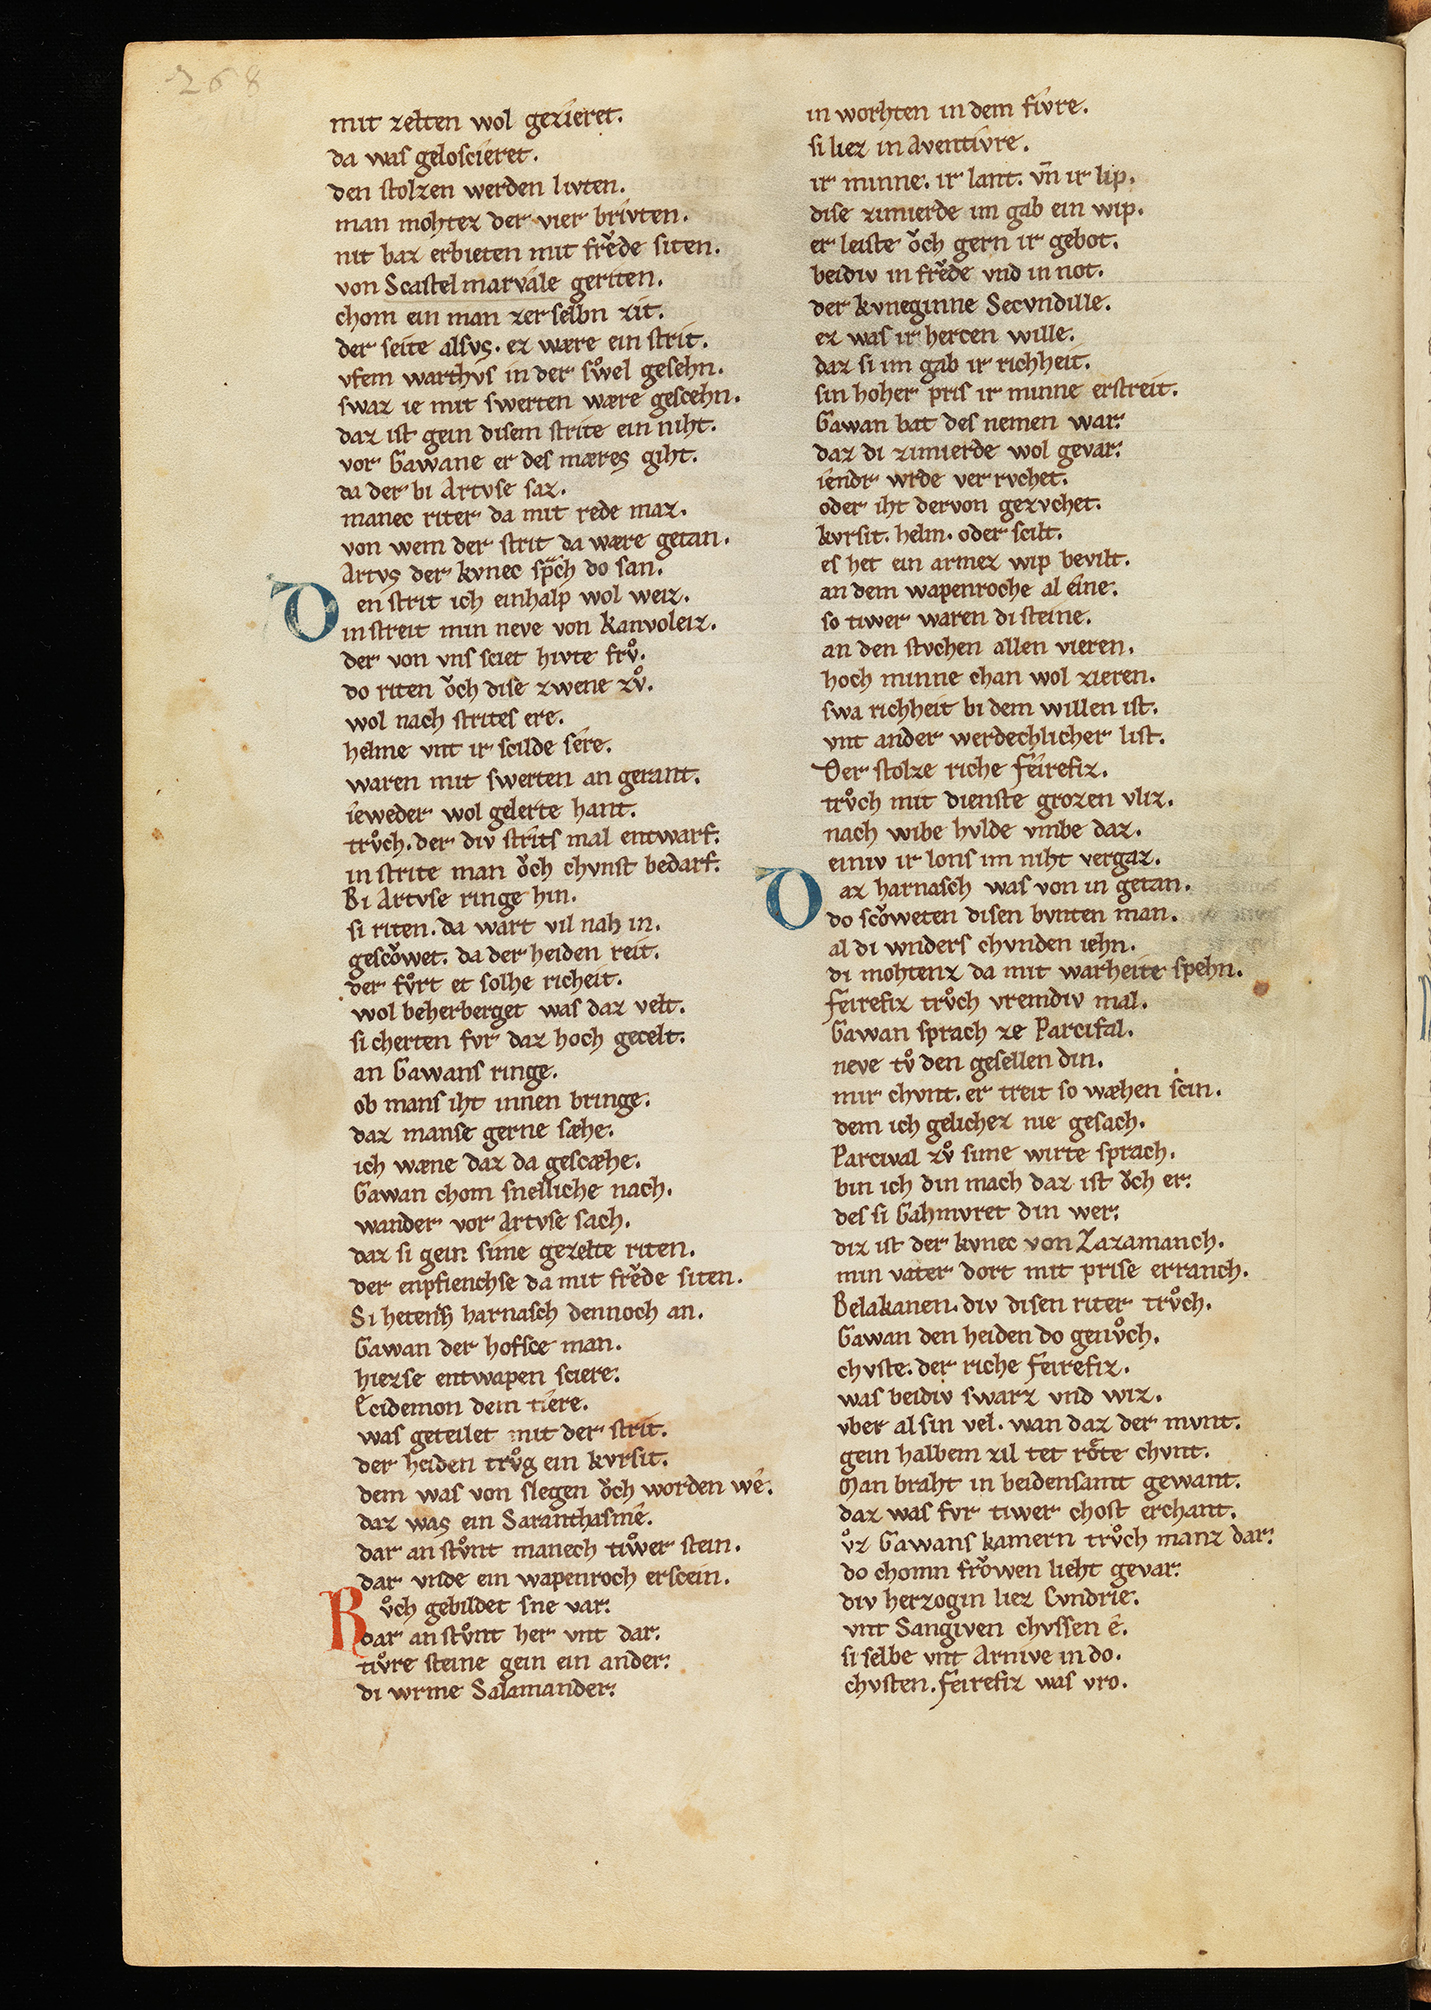 268
mit zelten wol gezieret.
da was geloscieret.
den stolzen werden livten.
man mohtez der vier brivten.
nit baz erbieten mit frͮde siten.
von Scastelmarvale geriten.
chom ein man zer selbn zit.
der seite alsvs. ez wære ein strit.
vfem warthvs in der sͮwel gesehn.
swaz ie mit swerten wære gescehn.
daz ist gein disem strite ein niht.
vor Gawane er des mæres giht.
da der bi Artvse saz.
manec riter da mit rede maz.
von wem der strit da wære getan.
Artvs der kvnec sp̃ch do san.
Den strit ich einhalp wol weiz.
in streit min neve von kanvoleiz.
der von vns sciet hivte frvͦ.
do riten oͮch dise zwene zvͦ.
wol nach strites ere.
helme vnt ir scilde sere.
waren mit swerten an gerant.
ieweder wol gelerte hant.
trvͦch. der div strits mal entwarf.
in strite man oͮch chvnst bedarf.
Bi Artvse ringe hin.
si riten. da wart vil nah in.
gescoͮwet. da der heiden reit.
der fvͦrt et solhe richeit.
wol beherberget was daz velt.
si cherten fvr daz hoch gecelt.
an Gawans ringe.
ob mans iht innen bringe.
daz manse gerne sæhe.
ich wæne daz da gescæhe.
Gawan chom snelliche nach.
wander vor Artvse sach.
daz si gein sime gezelte riten.
der enpfienchse da mit frͮde siten.
Si hetens harnasch dennoch an.
Gawan der hofsce man.
hiezse entwapen sciere.
Ecidemon dem tiere.
was geteilet mit der strit.
der heiden trvͦg ein kvrsit.
dem was von slegen oͮch worden we.
daz was ein Saranthasme.
dar an stvͦnt manech tiwͦer stein.
dar vnde ein wapenroch erscein.
Rvͦch gebildet sne var.
dar an stvͦnt her vnt dar.
tivͦre steine gein ein ander.
di wrme Salamander.
in worhten in dem fivre.
si liez in Aventivre.
ir minne. ir lant. vn̄ ir lip.
dise zimierde im gab ein wip.
er leiste oͮch gern ir gebot.
beidiv in frͮde vnd in not.
der kvneginne Secvndille.
ez was ir hercen wille.
daz si im gab ir richheit.
sin hoher pris ir minne erstreit.
Gawan bat des nemen war.
daz di zimierde wol gevar.
iendr wrde verrvchet.
oder iht dervon gezvchet.
kvrsit. helm. oder scilt.
es het ein armez wip bevilt.
an dem wapenroche al eine.
so tiwer waren di steine.
an den stvchen allen vieren.
hoch minne chan wol zieren.
swa richheit bi dem willen ist.
vnt ander werdechlicher list.
Der stolze riche feirefiz.
trvͦch mit dienste grozen vliz.
nach wibe hvlde vmbe daz.
einiv ir lons im niht vergaz.
Daz harnasch was von in getan.
do scoͮweten disen bvnten man.
al di wnders chvnden iehn.
di mohtenz da mit warheite spehn.
feirefiz trvͦch vremdiv mal.
Gawan sprach ze Parcifal.
neve tvͦ den gesellen din.
mir chvnt. er treit so wæhen scin.
dem ich gelichez nie gesach.
Parcival zvͦ sime wirte sprach.
bin ich din mach daz ist oͮch er.
des si Gahmvret din wer.
diz ist der kvnec von Zazamanch.
min vater dort mit prise erranch.
Belakanen. div disen riter trvͦch.
Gawan den heiden do genvͦch.
chvste. der riche feirefiz.
was beidiv swarz vnd wiz.
vber al sin vel. wan daz der mvnt.
gein halbem zil tet roͤte chvnt.
Man braht in beidensamt gewant.
daz was fvr tiwer chost erchant.
vͦz Gawans kamern trvͦch manz dar.
do chomn froͮwen lieht gevar.
div herzogin liez Cvndrie.
vnt Sangiven chvssen e.
si selbe vnt Arnive in do.
chvsten. feirefiz was vro.